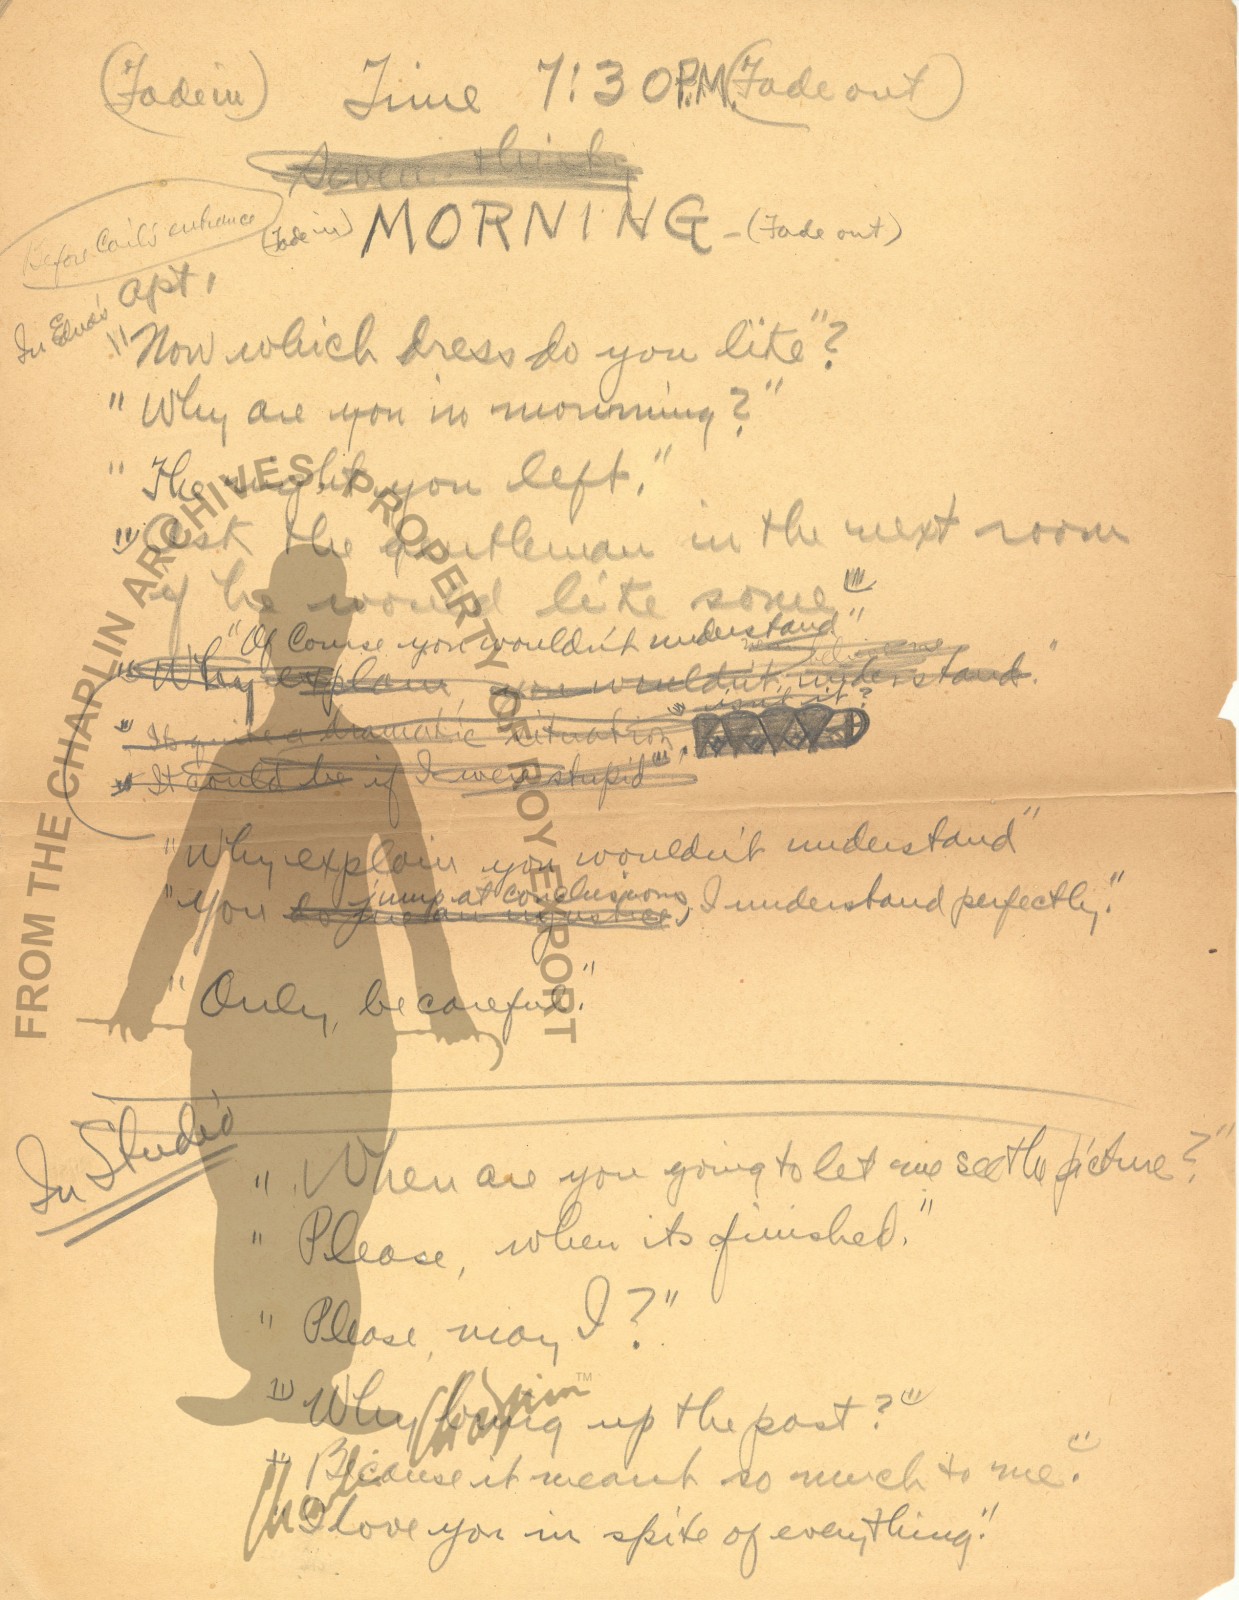 (Fade in) Time 7:30 P.M. (Fade out)
Seven thirty
Before Carl's entrance
(Fade in) MORNING - (Fade out)
In Edna's apt.
"Now which dress do you like"?
"Why are you in mourning?"
"The night you left."
"Ask the gentleman in the next room
if he would like some"
"Of Course you wouldn't understand"
"Why explain you wouldn't understand."
"Its quite a dramatic situation, isn't it?
"It could be if I were stupid"
"Why explain you wouldn't understand"
jump at conclusions,
"You do me an injustice, I understand perfectly."
"Only, be careful."
In Studio
"When are you going to let me see the picture?"
"Please, when its finished."
"Please, may I?"
"Why bring up the past?"
"Because it meant so much to me."
"I love you in spite of everything."
FROM THE CHAPLIN ARCHIVES PROPERTY OF ROY EXPORT
Charlie Chaplin™